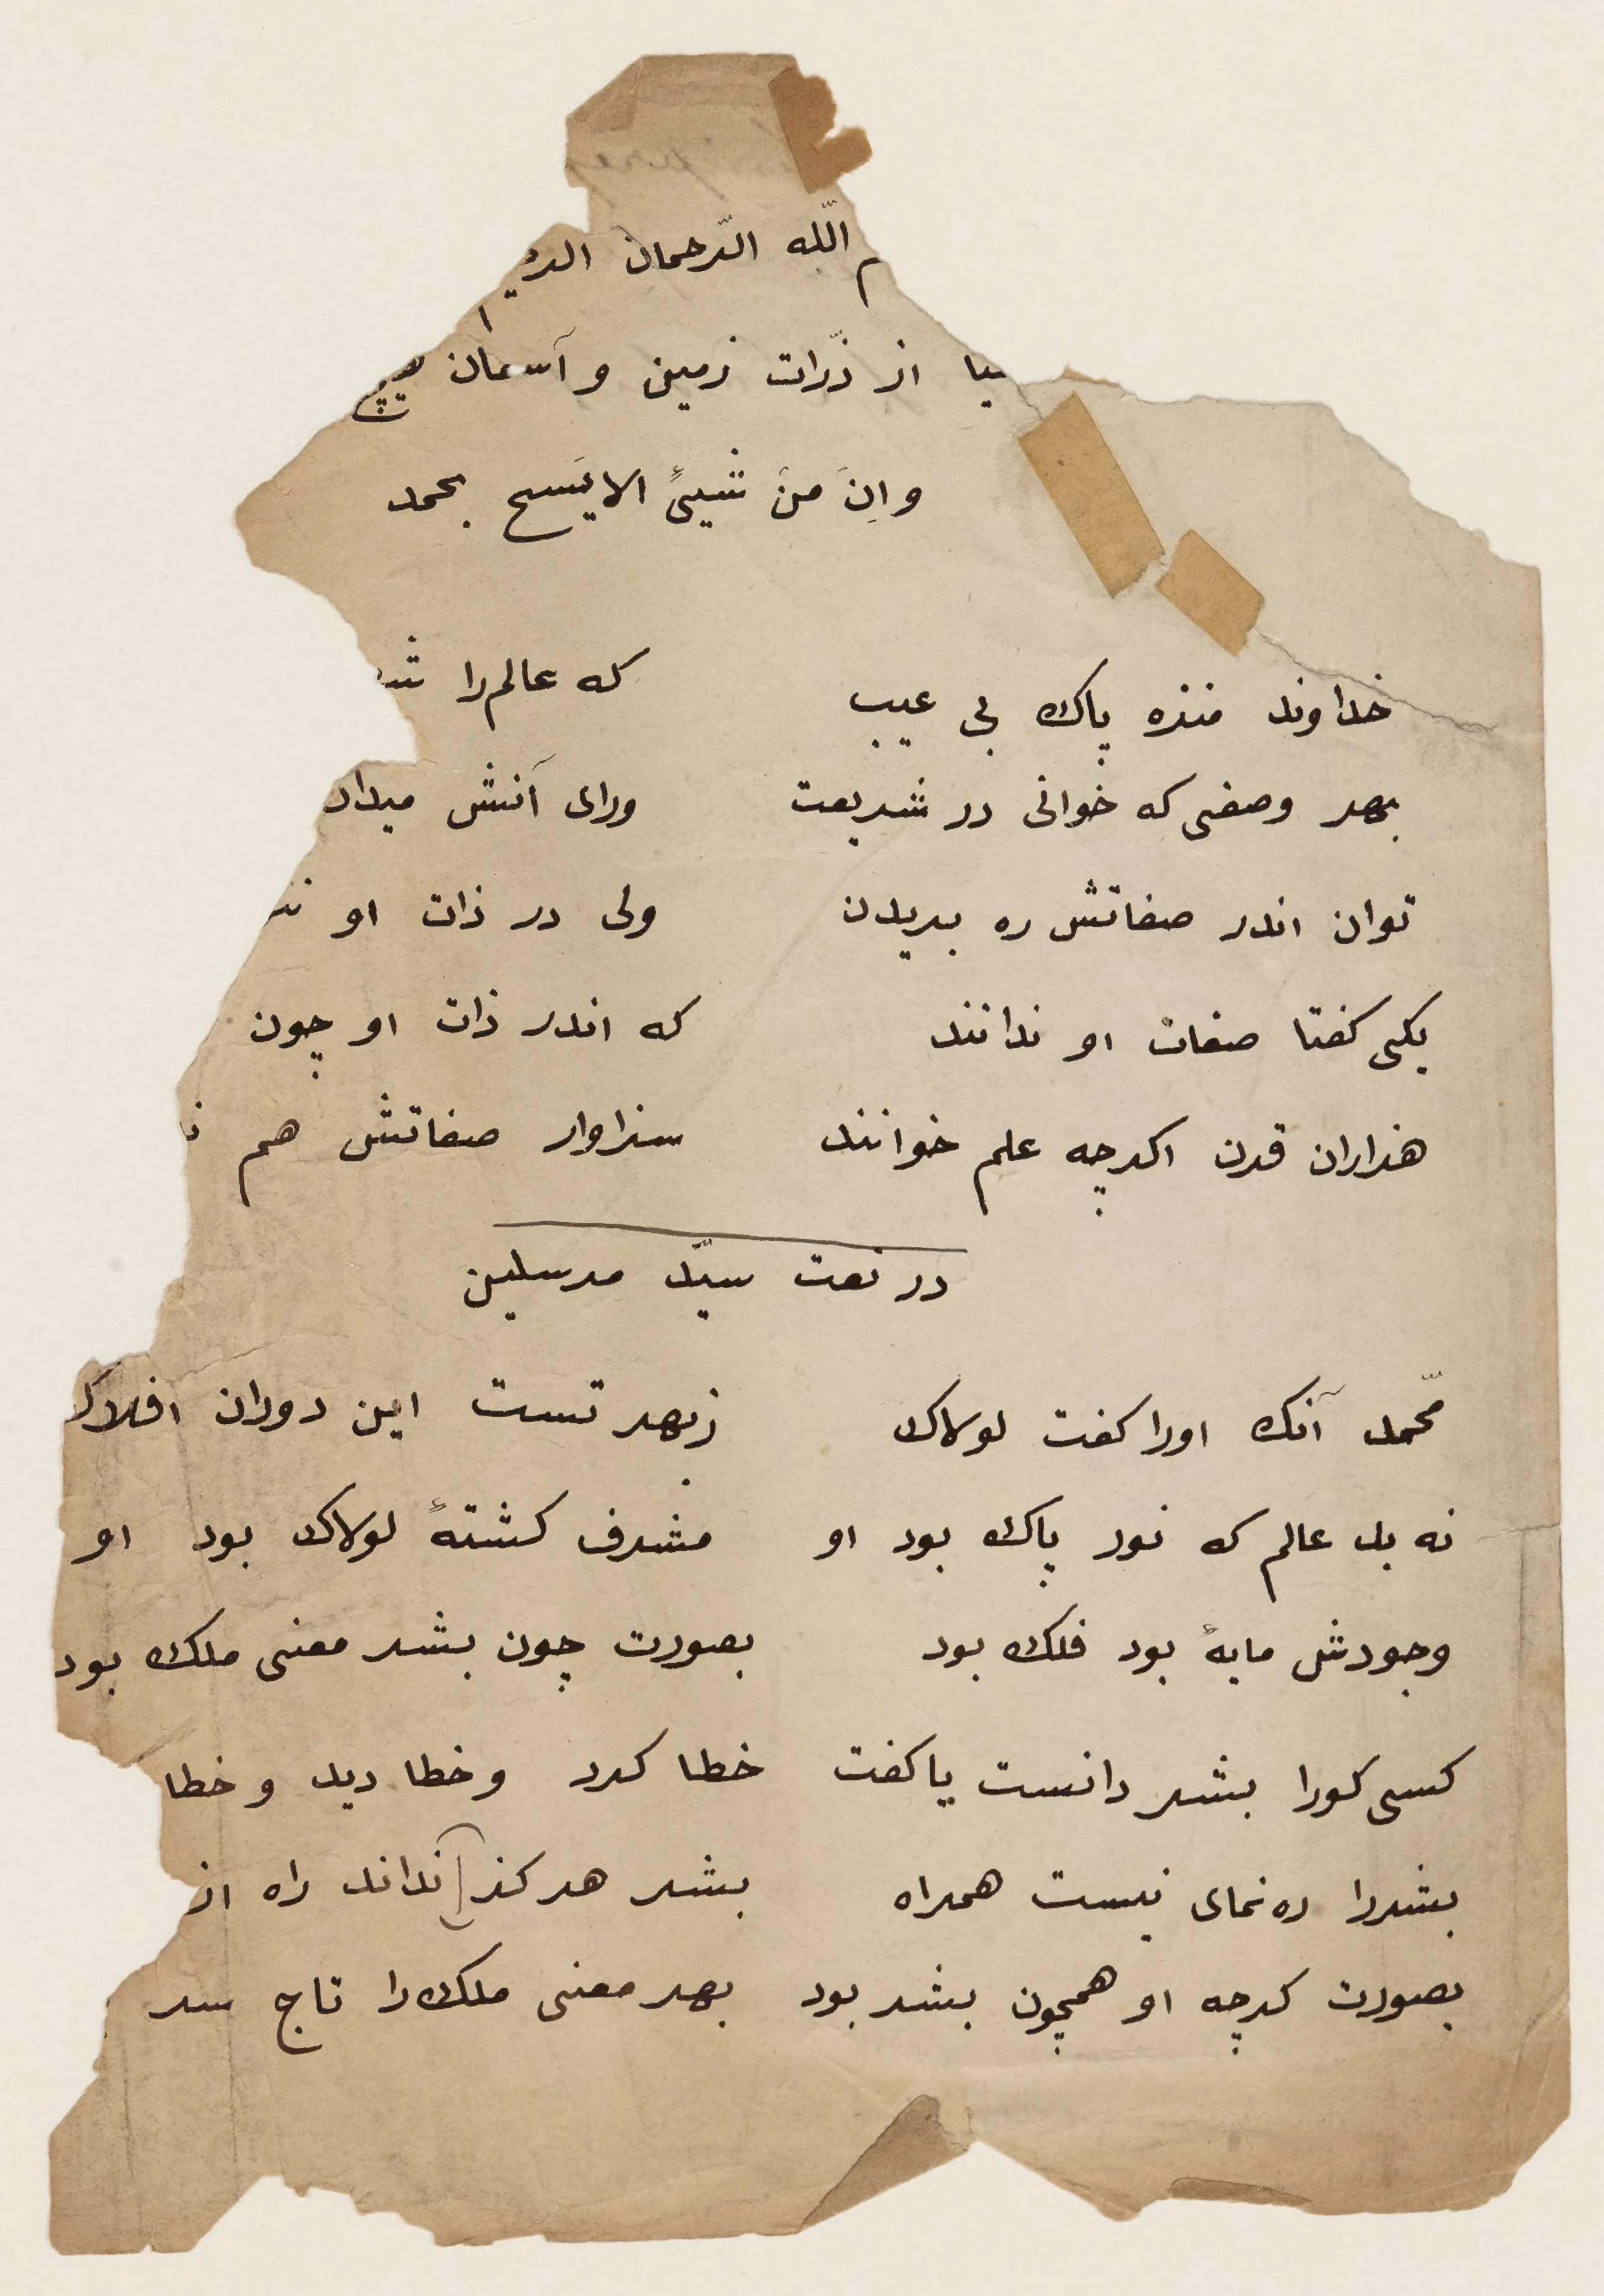 الله الرّحمان
از ذرّات زمین و آسمان هیچ
و اِنَ مِنَ شیئً الا یَسبح بحمد
خداوند منزه پاک بی عیب که عالم را
بهر وصفی که خوانی در شریعت ورای آنش میدان
توان اندر صفاتش ره بریدن ولی در ذات او
یکی کفتا صفات او ندانند که اندر ذات او چون
هزاران قرن اکرچه علم خوانند سزاوار صفاتش هم
در نعت سیّد مرسلین
محمّد آنک اورا کفت لولاک زبهر تست این دوران افلاک
نه بل عالم که نور پاک بود او مشرف کشتهٔ لولاک بود او
وجودش مایهٔ بود فلک بود بصورت چون بشر معنی ملک بود
کسی کورا بشر دانست یا کفت خطا کرد و خطا دید و خطا
بشررا ره نمای نیست همراه بشر هرکز نداند راه از
بصورت کرچه او همچون بشر بود بهر معنی ملک را تاج سر